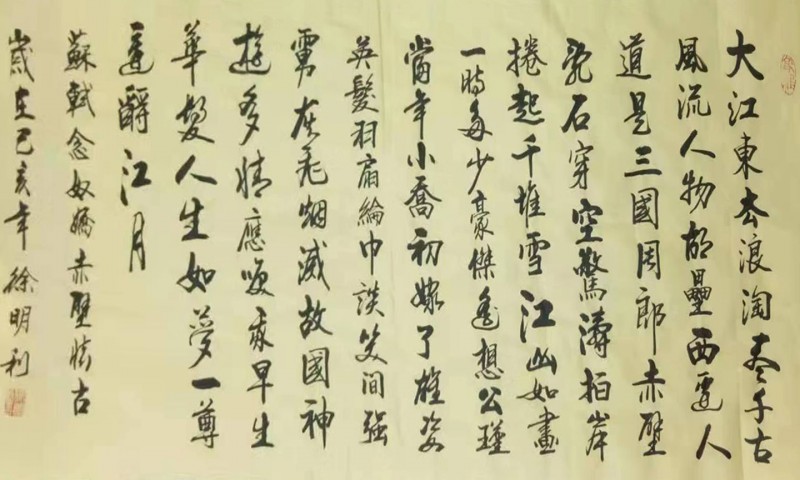 大江東去浪淘盡千古
風流人物故壘西邊人
道是三國周郎赤壁
亂石穿空驚濤拍岸
捲起千堆雪江山如畫
一時多少豪傑遙想公瑾
當年小喬初嫁了雄姿
英髮羽扇綸巾談笑間强
虜灰飛烟滅故國神
遊多情應笑我早生
華髮人生如夢一尊
還酹江月
蘇軾念奴嬌赤壁懷古
歲在己亥年 徐明利